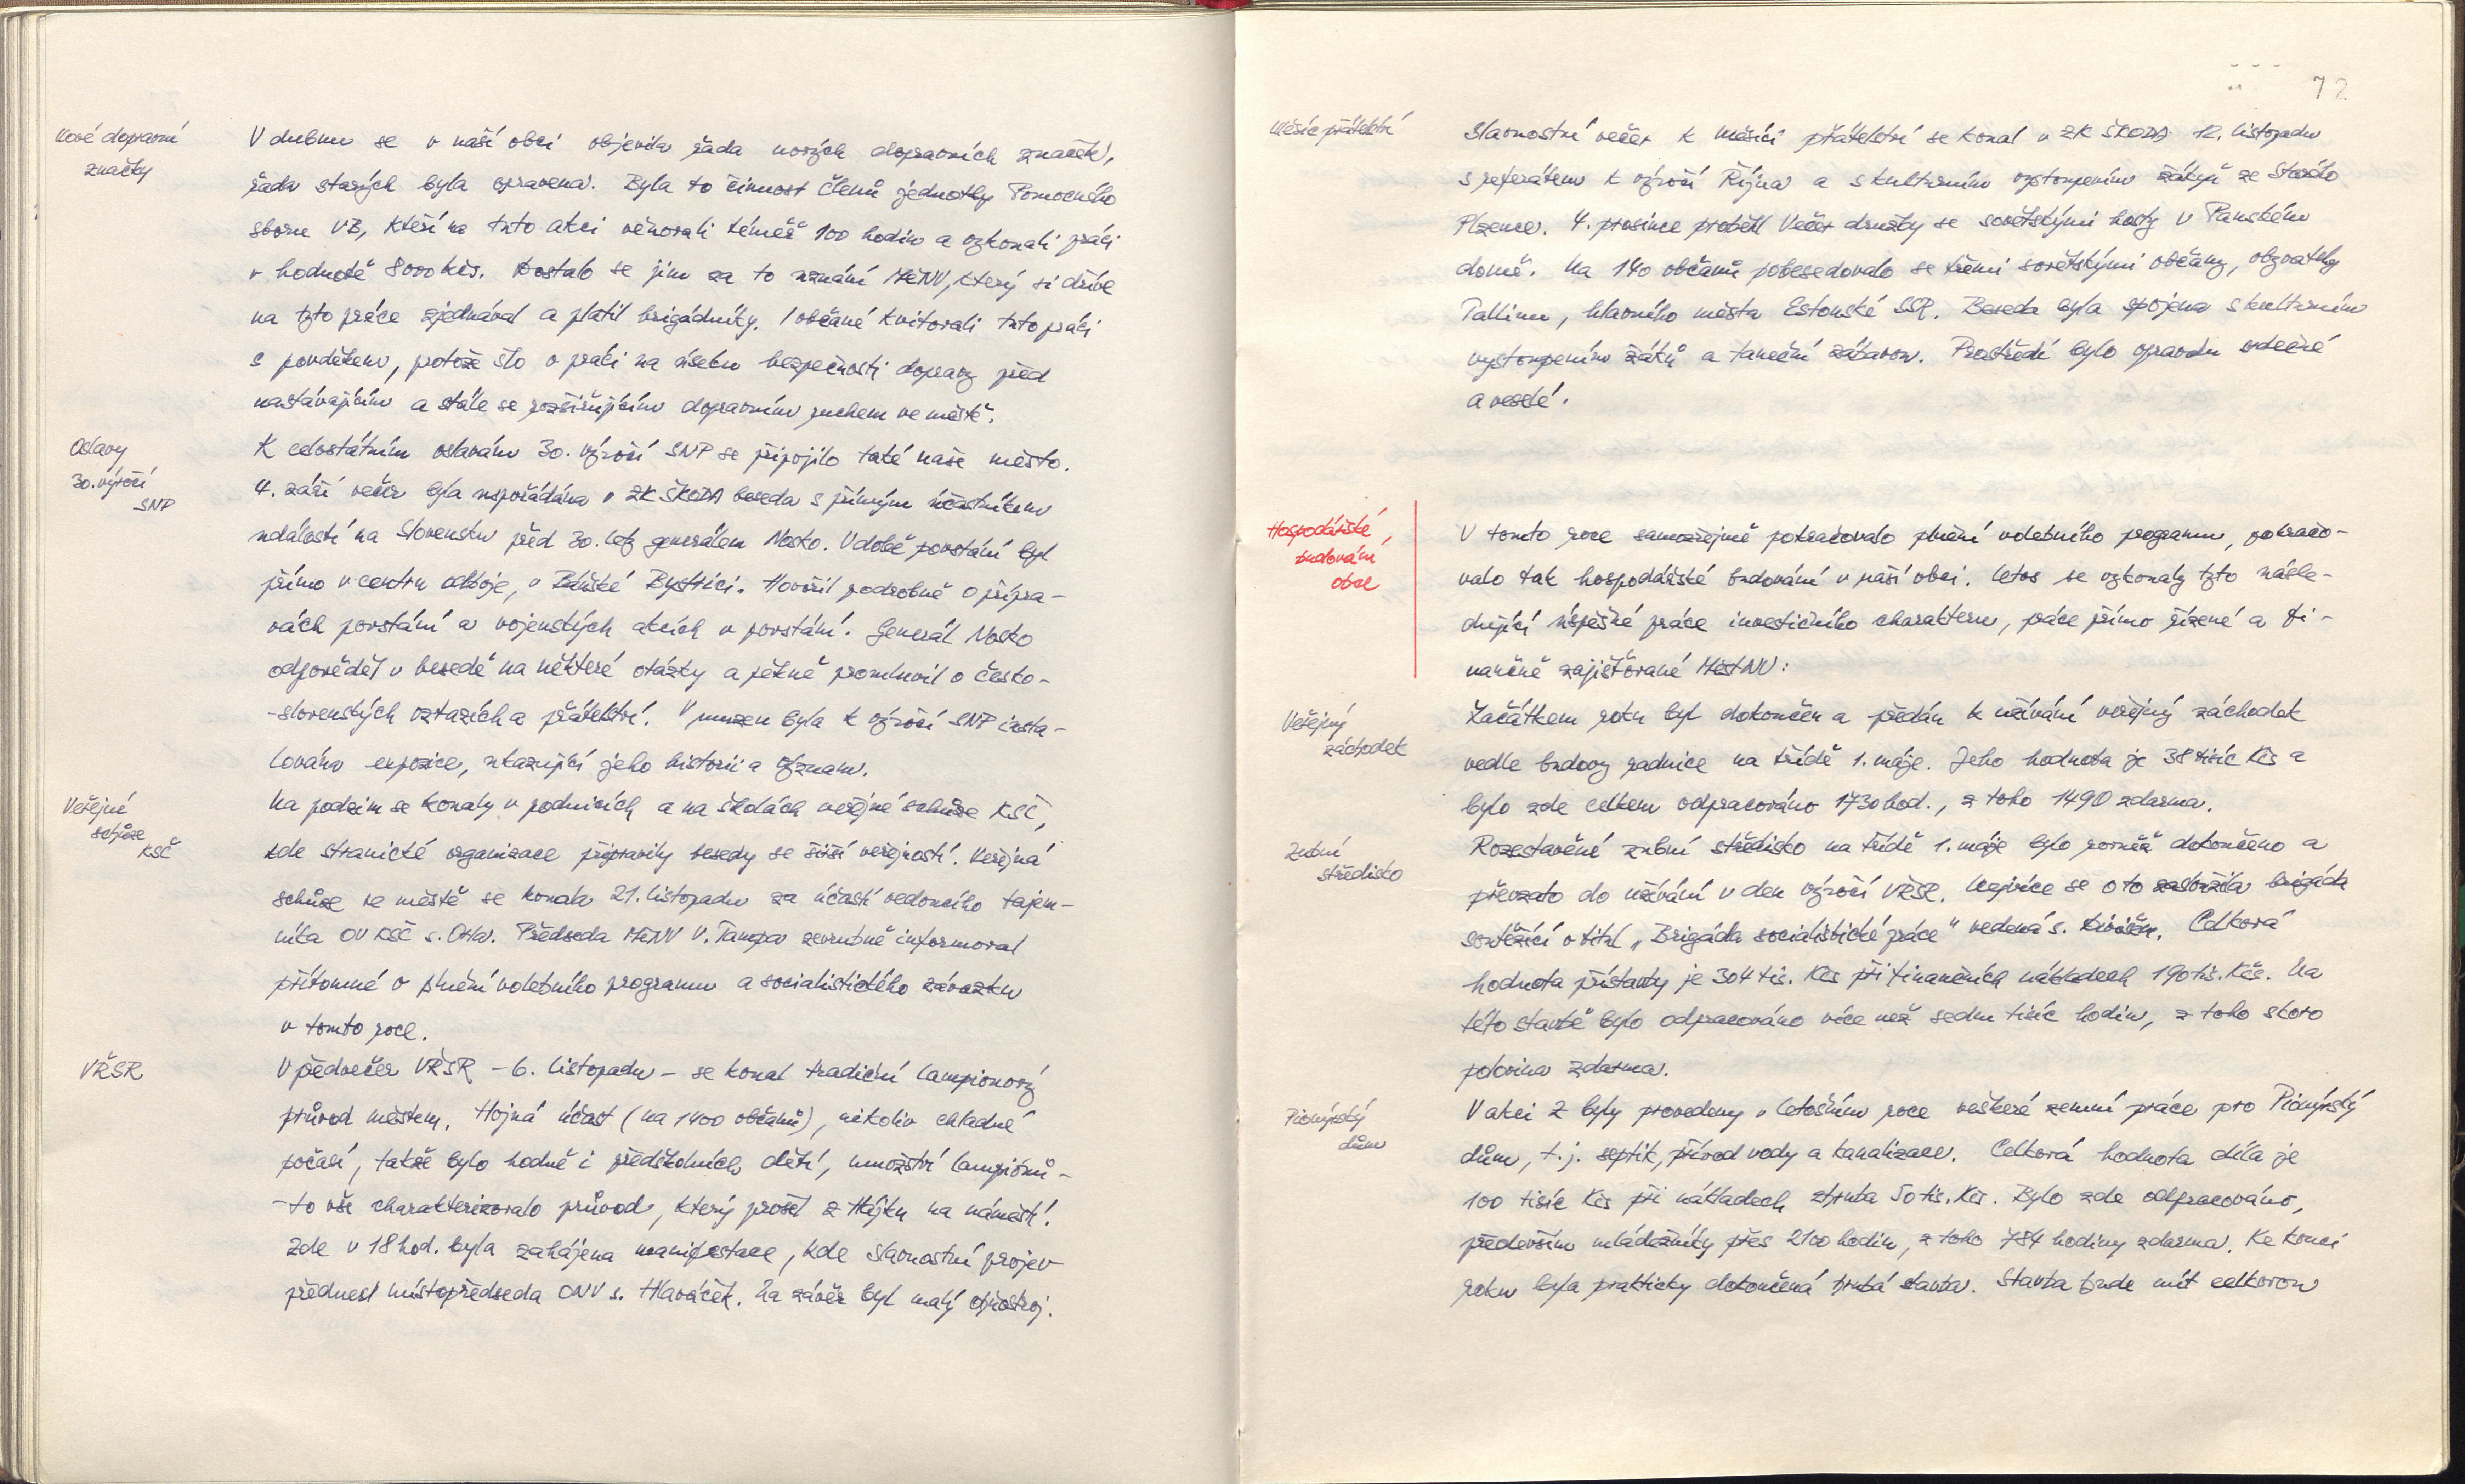 Nové dopravní
značky
V dubnu se v naší obci objevila řada nových dopravních značek,
řada starých byla opravena. Byla to činnost členů jednotky Pomocného
sboru VB, kteří na tuto akci věnovali téměř 100 hodin a vykonali práci
v hodnotě 8000 Kčs. Dostalo se jim za to uznání MěNV, který si dříve
na tyto práce zjednával a platil brigádníky. I občané kvitovali tuto práci
s povděkem, protože šlo o práci na úseku bezpečnosti dopravy před
nastávajícím a stále se rozšiřujícím dopravním ruchem ve městě.
Oslavy
30. výročí
SNP
K celostátním oslavám 30. výročí SNP se připojilo také naše město.
4. září večer byla uspořádána v ZK ŠKODA beseda s přímým účastníkem
událostí na Slovensku před 30. lety generálem Nosko. V době povstání byl
přímo v centru odboje, v Báňské Bystrici. Hovořil podrobně o přípra-
vách povstání a vojenských akcích v povstání. Generál Nosko
odpověděl v besedě na některé otázky a pěkně promluvil o česko-
-slovenských vztazích a přátelství. V muzeu byla k výročí SNP insta-
lována expozice, ukazující jeho historii a význam.
Veřejné
schůze
KSČ
Na podzim se konaly v podnicích a na školách veřejné schůze KSČ,
kde stranické organizace připravily besedy se širší veřejností. Veřejná
schůze ve městě se konala 21. listopadu za účasti vedoucího tajem-
níka OV KSČ s. Předseda MěNV V. Tampa zevrubně informoval
přítomné o plnění volebního programu a socialistického závazku
v tomto roce.
VŘSR
V předvečer VŘSR - 6. listopadu - se konal tradiční lampionový
průvod městem. Hojná účast (na 1400 občanů), nikoliv chladné
počasí, takže bylo hodně i předškolních dětí, množství lampiónů -
- to vše charakterizovalo průvod, který prošel z Hájku na náměstí.
Zde v 18 hod. byla zahájena manifestace, kde slavnostní projev
přednesl místopředseda ONV s. Hlaváček. Na závěr byl malý ohňostroj.
72
Měsíc přátelství
Slavnostní večer k Měsíci přátelství se konal v ZK ŠKODA 12. listopadu
s referátem k výročí Října a s kulturním vystoupením žáků ze Starého
Plzence. 4. prosince proběhl Večer družby se sovětskými hosty v Panském
domě. Na 140 občanů pobesedovalo se třemi sovětskými občany, obyvateli
Tallinu, hlavního města Estonské SSR. Beseda byla spojena s kulturním
vystoupením žáků a taneční zábavou. Prostředí bylo opravdu srdečné
a veselé.
Hospodářské
budování
obce
V tomto roce samozřejmě pokračovalo plnění volebního programu, pokračo-
valo tak hospodářské budování v naší obci. Letos se vykonaly tyto násle-
dující úspěšné práce investičního charakteru, práce přímo řízené a fi-
nančně zajišťované MěstNV:
Veřejný
záchodek
Začátkem roku byl dokončen a předán k užívání veřejný záchodek
vedle budovy radnice na třídě 1. máje. Jeho hodnota je 38 tisíc Kčs a
bylo zde celkem odpracováno 1730 hod., z toho 1490 zdarma.
Zubní
středisko
Rozestavěné zubní středisko na třídě 1. máje bylo rovněž dokončeno a
převzato do užívání v den výročí VŘSR. Nejvíce se o to zasloužila brigáda
soutěžící o titul „Brigáda socialistické práce" vedená s. Celková
hodnota přístavby je 304 tis. Kčs při finančních nákladech 190 tis. Kčs. Na
této stavbě bylo odpracováno více než sedm tisíc hodin, z toho skoro
polovina zdarma.
Pionýrský
dům
V akci Z byly provedeny v letošním roce veškeré zemní práce pro Pionýrský
dům, t. j. septik, přívod vody a kanalizace. Celková hodnota díla je
100 tisíc Kčs při nákladech zhruba 50 tis. Kčs. Bylo zde odpracováno,
především mládežníky přes 2100 hodin, z toho 784 hodiny zdarma. Ke konci
roku byla prakticky dokončená hrubá stavba. Stavba bude mít celkovou